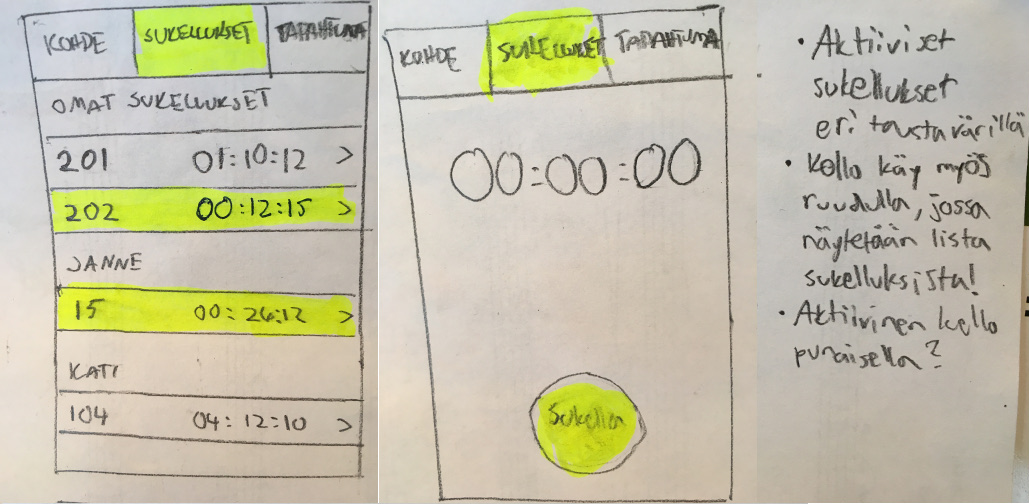 KOHDE SUKELLUKSET TAPAHTUMA
OMAT SUKELLUKSET
201 01:10:12 >
202 00:12:15 >
JANNE
15 00:26:12 >
KATI
104 04:12:10 >
KOHDE SUKELLUKSET TAPAHTUMA
00:00:00
Sukella
• Aktiiviset
sukellukset
eri taustavärillä
• Kello käy myös
ruudulla, jossa
näytetään lista
sukelluksista!
• Aktiivinen kello
punaisella?